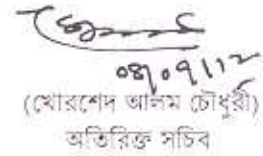 ০৪/০৭/১২
(খোরশেদ আলম চৌধুরী)
অতিরিক্ত সচিব